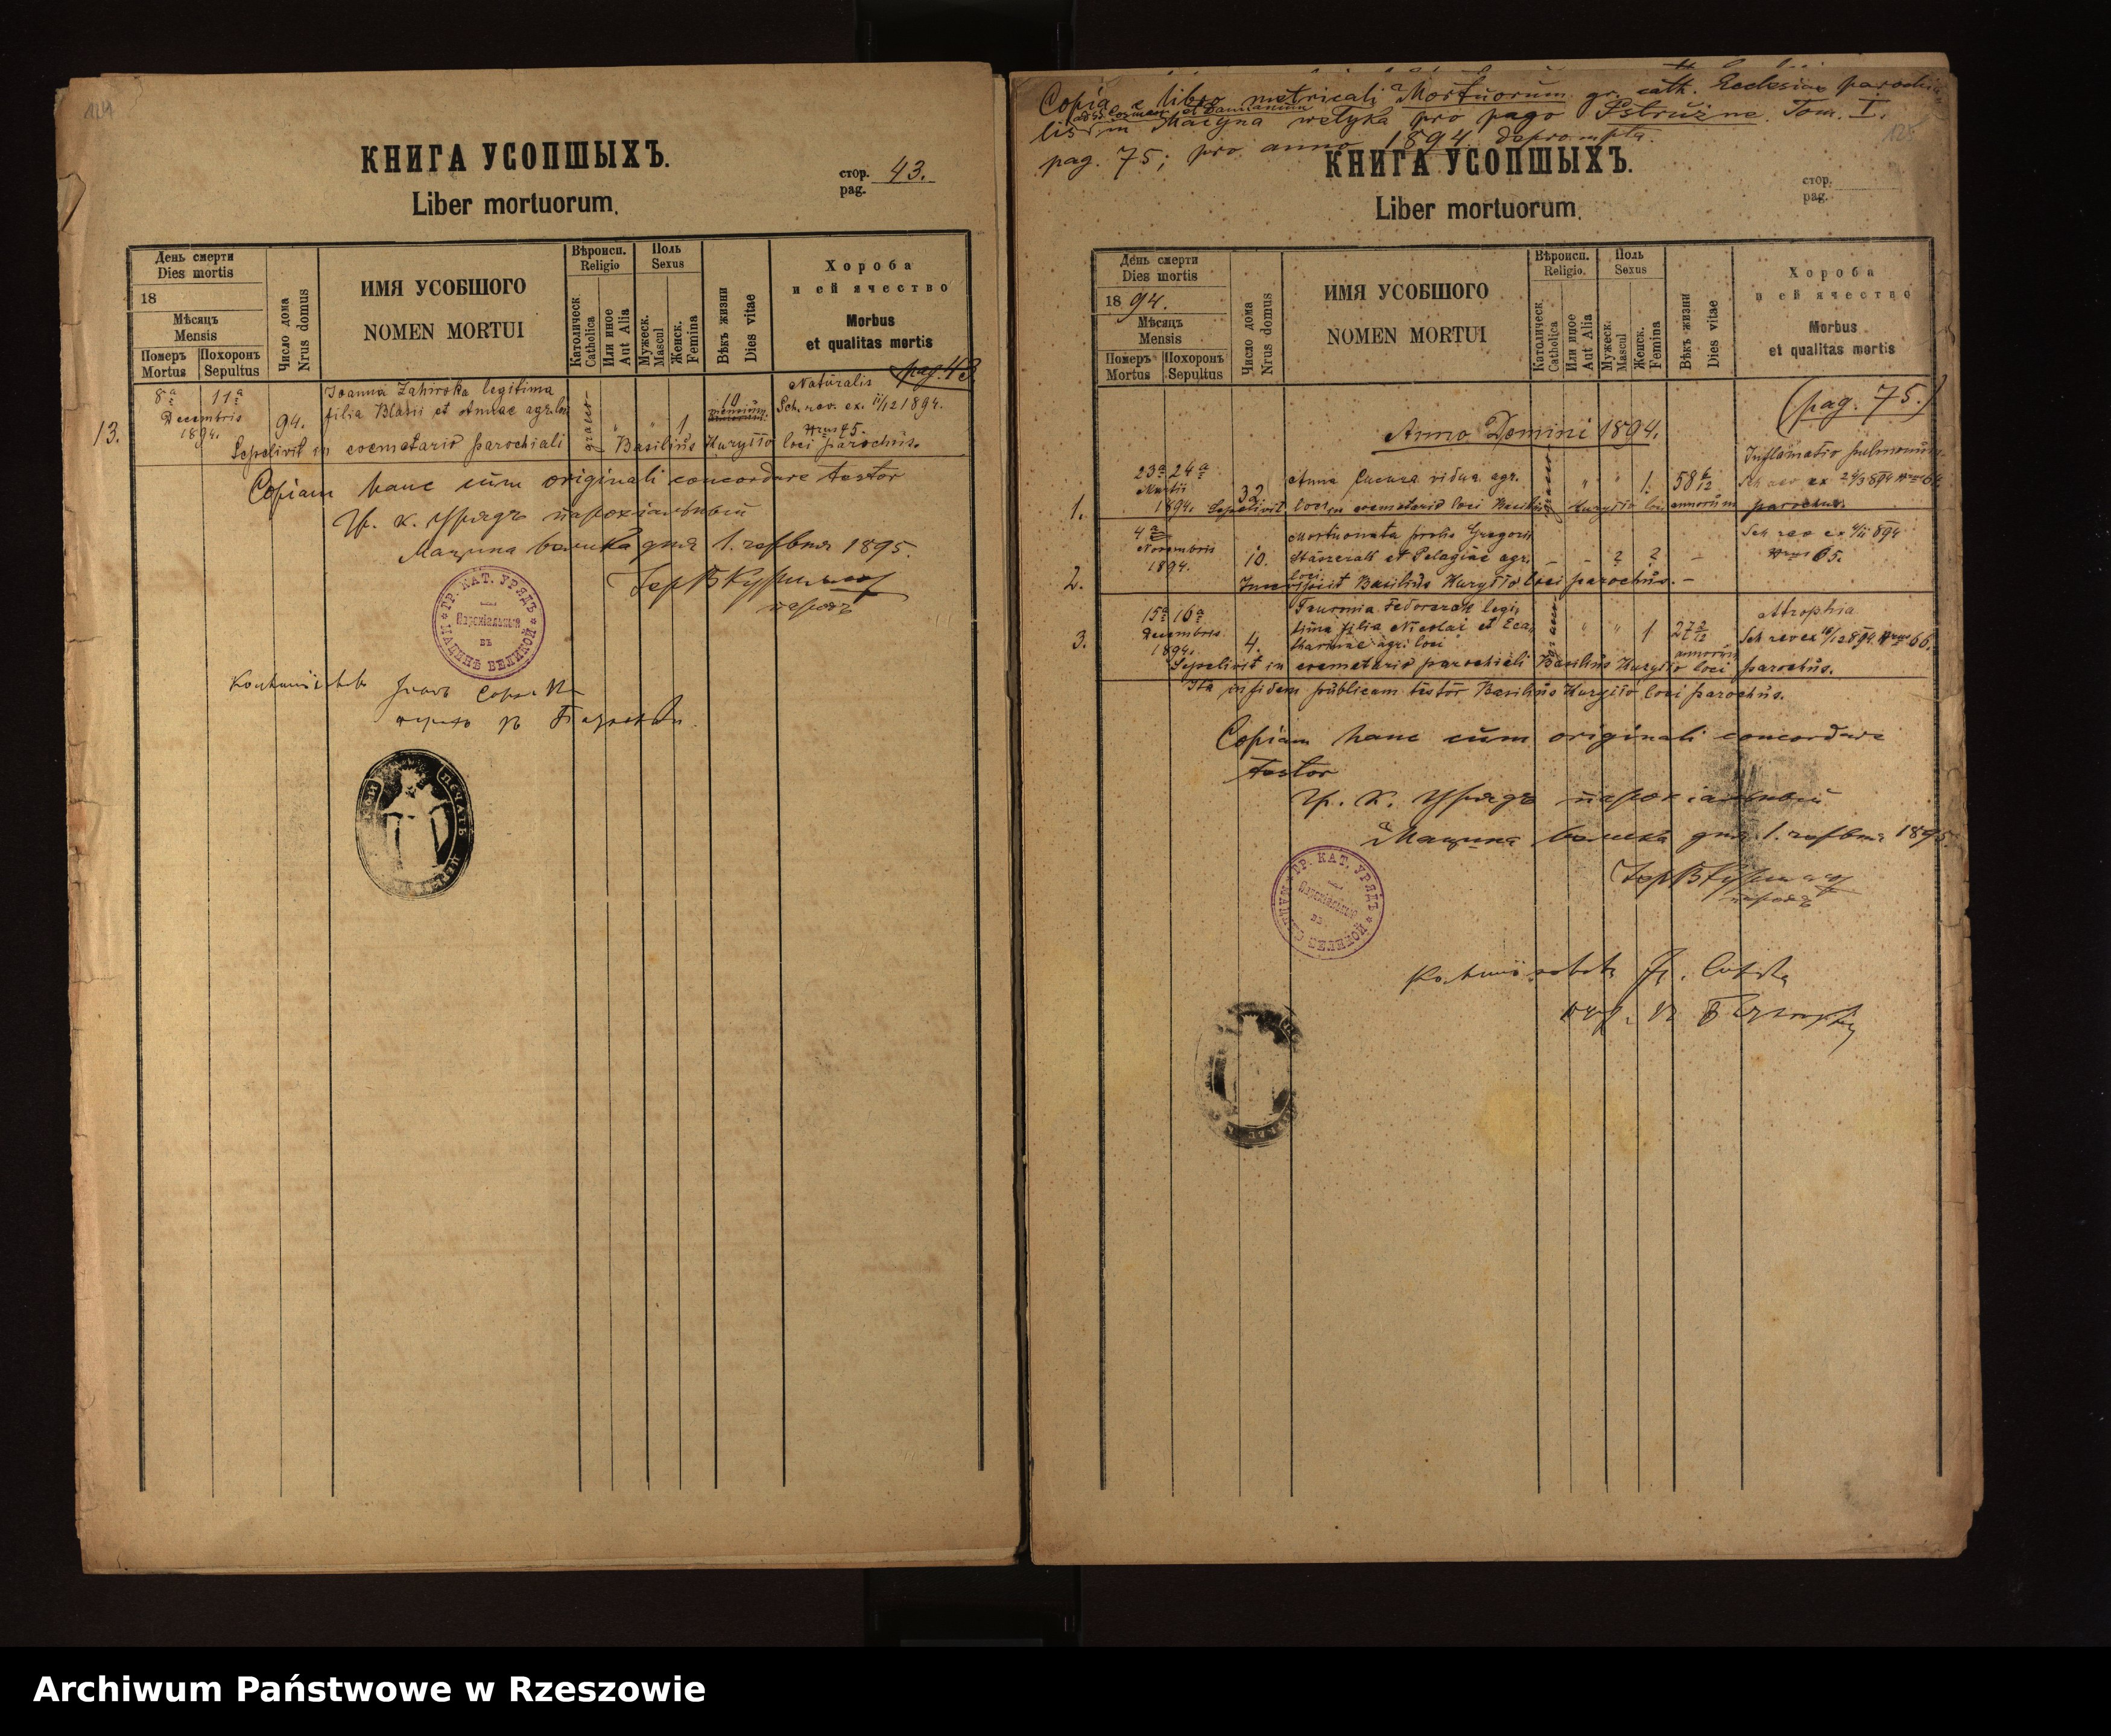 КНИГА УСОПШЫХЪ.
Liber mortuorum.
стор. pag. 43.
День смерти
Dies mortis
18
Мѣсяцъ
Mensis
Померъ Mortus
Похоронъ Sepultus
Число дома Nrus domus
ИМЯ УСОБШОГО
NOMEN MORTUI
Вѣроисп. Religio
Католическ. Catholica
Или иное Aut Alia
Поль Sexus
Мужеск. Mascul
Женск. Femina
Вѣкъ жизни Dies vitae
Хороба
и ей ячество
Morbus
et qualitas mortis
pag. 43.
13.
8ª 11ª
Decembris
1894.
94.
Joanna legitima
filia Blasii et Annae agr. loci
graeco-
" " 1
10
Naturalis
Sch. rev. ex. 11/12 1894.
Nrus 75.
Sepelivit in coemetario parochiali Basilius Kuryłło loci parochus.
Copiam hanc cum originali concordare testor
Гр. к. Урядъ парохіальный
Мацина велика дня 1. червня 1895.
парохъ
ГР. КАТ. УРЯДЪ
Парохіальный
въ
МАЦИНѢ ВЕЛИКОЙ
ПЕЧАТЬ
Copia e libro metricali Mortuorum gr. cath. Ecclesiae parochia-
lis ad SS. Cosmam et Damianum in Macyna wełyka pro pago Pstrużne. Tom. I.
pag. 75; pro anno 1894. deprompta.
КНИГА УСОПШЫХЪ.
Liber mortuorum.
стор. pag.
День смерти
Dies mortis
1894.
Мѣсяцъ
Mensis
Померъ Mortus
Похоронъ Sepultus
Число дома Nrus domus
ИМЯ УСОБШОГО
NOMEN MORTUI
Вѣроисп. Religio.
Католическ. Catholica
Или иное Aut Alia
Поль Sexus
Мужеск. Mascul
Женск. Femina
Вѣкъ жизни Dies vitae
Хороба
и ей ячество
Morbus
et qualitas mortis
(pag. 75.)
Anno Domini 1894.
1.
23ª 24ª
Martii
1894.
32
Anna Cucura vidua agr.
loci
" " 1.
58 6/12
annorum
Inflamatio pulmonum.
Sch rev ex 24/3 894 Nrus 64
Sepelivit in coemetario loci Basilius Kuryłło loci parochus.
2.
4ª
Novembris
1894.
10.
Mortuonata proles Gregorii
et Pelagiae agr.
loci
– – ? ? –
Sch rev ex 4/11 894
Nrus 65.
Basilius Kuryłło loci parochus.–
3.
15ª 16ª
Decembris
1894.
4.
Fedorczak legi-
tima filia Nicolai et Eca-
tharinae agri. loci
" " 1
27 2/12
annorum
Atrophia
Sch rev ex 16/12 894. Nrus 66.
Sepelivit in coemetario parochiali Basilius Kuryłło loci parochus.
Ita in fidem publicam testor Basilius Kuryłło loci parochus.
Copiam hanc cum originali concordare
testor
Гр. К. Урядъ парохіальный
Мацина велика дня 1. червня 1895
парохъ
ГР. КАТ. УРЯДЪ
Парохіальный
въ
МАЦИНѢ ВЕЛИКОЙ
Archiwum Państwowe w Rzeszowie